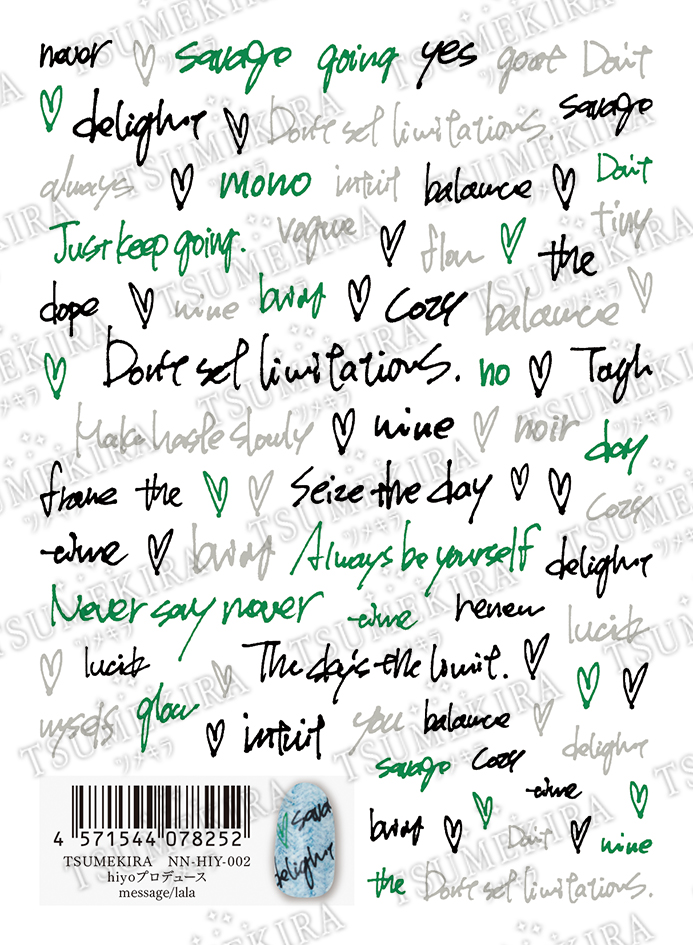 never ♡ savage going yes goat Don't
♡ delight ♡ Don't set limitations. savage
always ♡ mono intuit balance ♡ Don't
Just keep going. vague ♡ flow ♡ the tiny
dope ♡ nine burst ♡ cozy balance ♡
♡ Don't set limitations. no ♡ Tagh
Make haste slowly ♡ nine ♡ noir day
frame the ♡ ♡ Seize the day ♡ ♡ cozy
time ♡ burst Always be yourself delight
Never say never time renew lucid
♡ lucid ♡ The day's the limit. ♡ ♡ ♡
myself glow ♡ intuit you balance ♡ delight
savage cozy
♡ time ♡
burst ♡ Don't ♡ nine
the Don't set limitations.
4 571544 078252
TSUMEKIRA NN-HIY-002
hiyoプロデュース
message/lala
sava
delight
TSUMEKIRA
ツメキラ